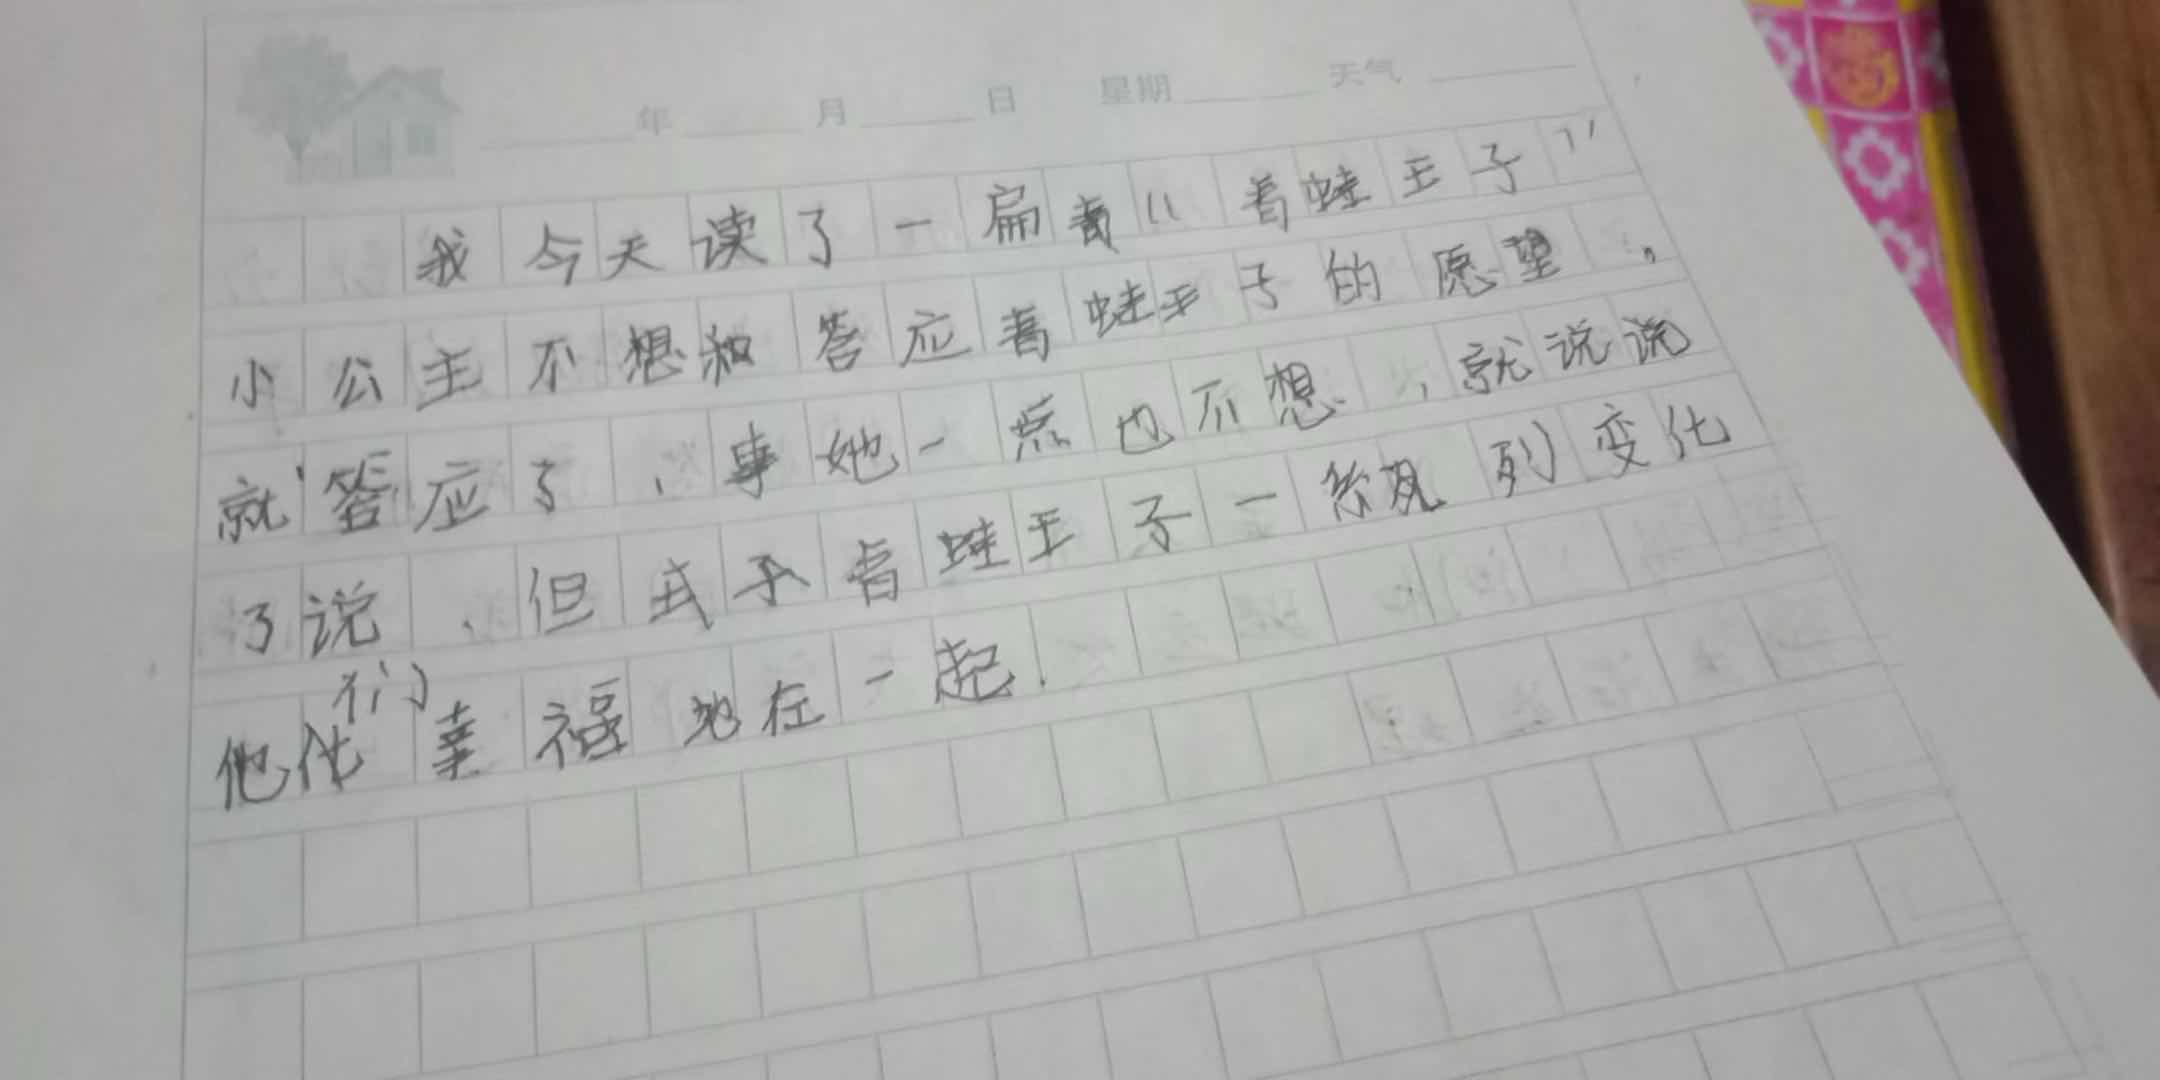 年 月 日 星期 天气
我今天读了一扁青“青蛙王子”
小公主不想和答应青蛙王子的愿望，
就答应了，事她一点也不想，就说说
了说，但 青蛙王子一系 列变化
们
他化幸福地在一起.